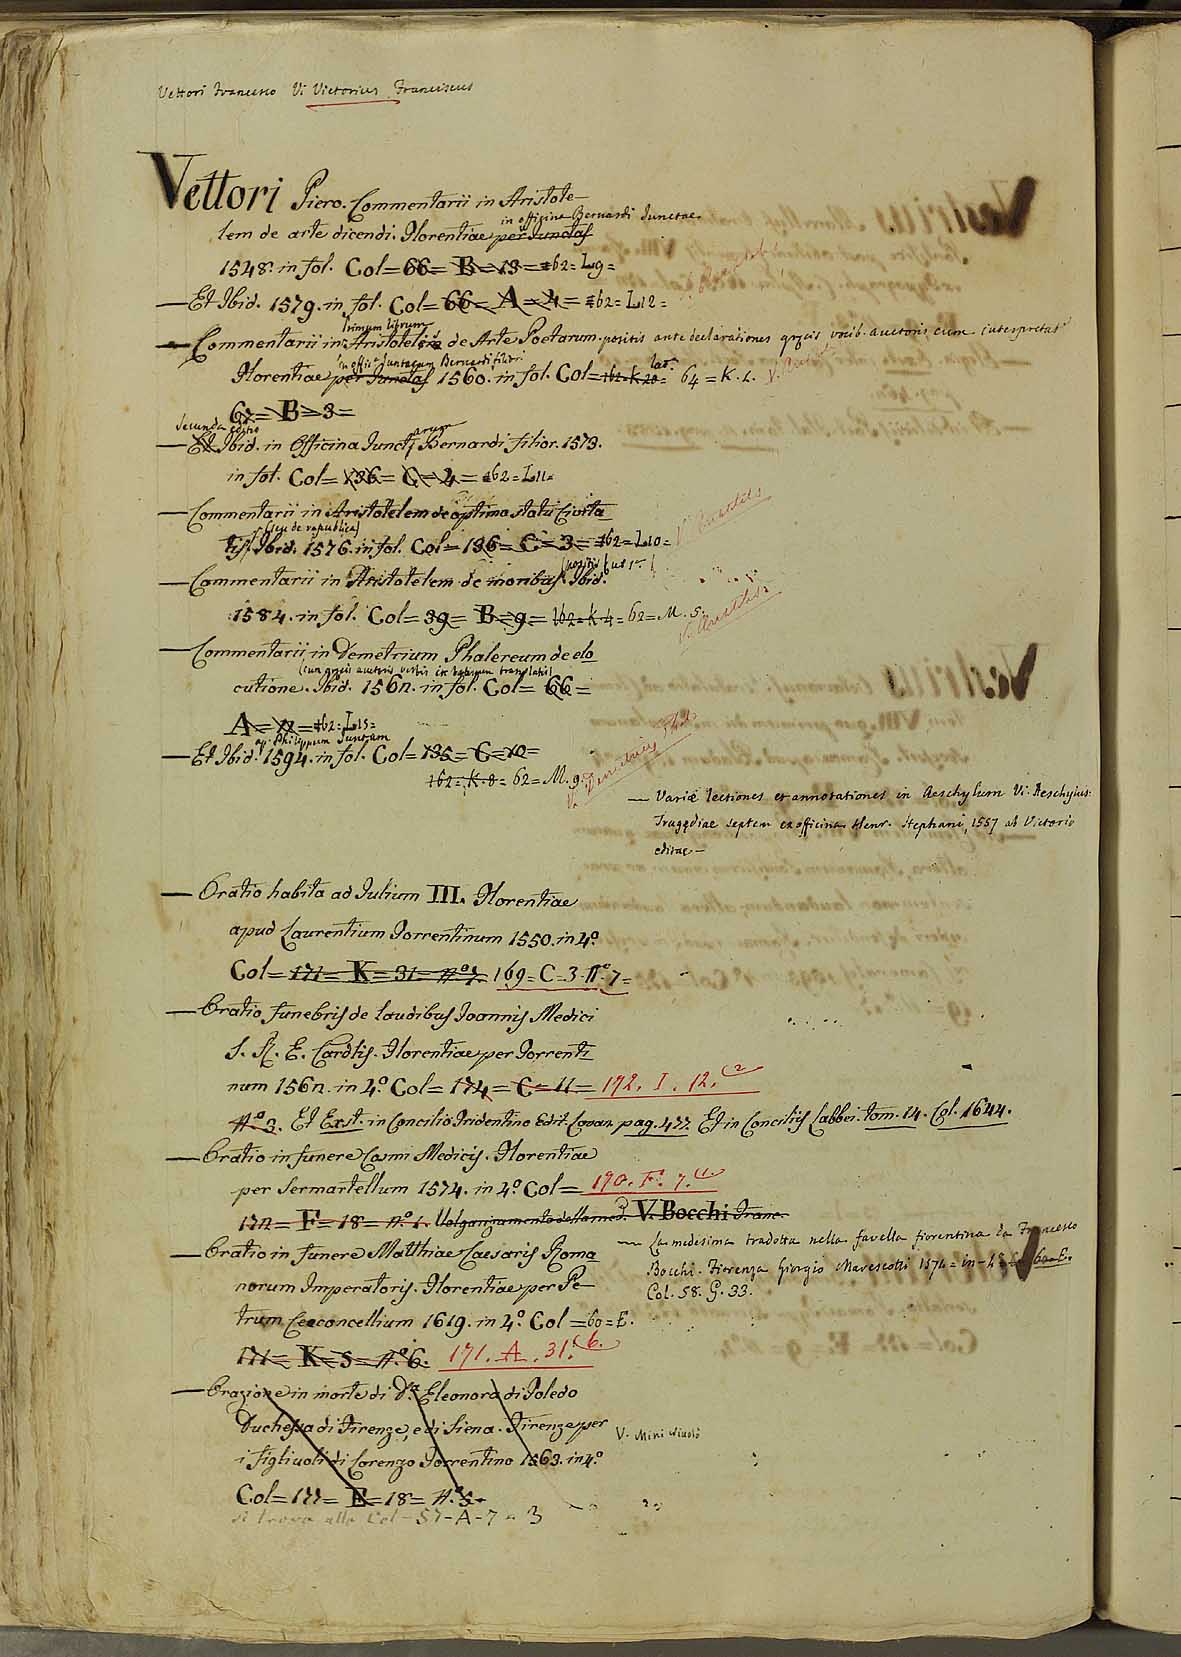 Vettori Francesco Vi Victorius Franciscus
Vettori Piero. Commentarii in Aristote-
in officina Bernardi Junctae
lem de arte dicendi. Florentiae per Junctas
1548. in fol. Col= 66= B= 13= 162= L9=
— Et Ibid. 1579. in fol. Col= 66= A= 4= 162= L12=
primum librum
— Commentarii in Aristotelis de Arte Poetarum. positis ante declarationes graecis vocib. auctoris cum interpretat
in offic. Juntarum Bernardi filior.
Florentiae per Junctas 1560. in fol. Col= 162= K. 20= 64= K. 2.
62= B= 3=
secunda editio
— Et Ibid. in Officina Junctarum Bernardi filior. 1573.
in fol. Col= 136= C= 4= 162= L11=
— Commentarii in Aristotelem de optimo statu Civita
(seu de republica)
tis. Ibid. 1576. in fol. Col= 136= C= 3= 162= L10=
V. Aristotelis
— Commentarii in Aristotelem de moribus. Ibid.
1584. in fol. Col= 39= B= 9= 162= K 4= 62= M. 5.
V. Aristotelis
— Commentarii in Demetrium Phalereum de elo
(cum graecis auctoris verbis in latinum translatis)
cutione. Ibid. 1562. in fol. Col= 66=
A= 12= 162= L15=
ap. Philippum Junctam
— Et Ibid. 1594. in fol. Col= 135= C= 10=
162= K. 8= 62= M. 9.
V. Demetrius Phal.
— Variae lectiones et annotationes in Aeschylum Vi. Aeschylus:
Tragediae septem ex officina Henr. Stephani, 1557 ab Victorio
editae—
— Oratio habita ad Iulium III. Florentiae
apud Laurentium Torrentinum 1550. in 4º
Col= 171= K= 31= nº 7. 169= C= 3. nº 7=
— Oratio funebris de laudibus Ioannis Medici
S. R. E. Cardlis. Florentiae per Torrenti
num 1562. in 4º Col= 174= C= 11= 172. I. 12. (2
nº 3. Et Exst. in Concilio Tridentino Edit. Lovan. pag. 477. Et in Conciliis Labbei. tom. 14. Col. 1644.
— Oratio in funere Cosmi Medicis. Florentiae
per Sermartellum 1574. in 4º Col= 170. F. 7. (1.
172= F= 18= nº 1. Volgarizzamento della med. V. Bocchi Franc.
— La medesima tradotta nella favella fiorentina da Francesco
Bocchi. Fiorenza Giorgio Marescotti 1574= in-4º 60= E.
Col. 58. G. 33.
— Oratio in funere Matthiae Caesaris Roma
norum Imperatoris. Florentiae per Pe-
trum Cecconcellium 1619. in 4º Col= 60= E.
171= K= 5= nº 6. 171. A. 31. (6.
— Orazione in morte di Dª Eleonora di Toledo
Duchessa di Firenze, e di Siena. Firenze per
V. Mini
i figliuoli di Lorenzo Torrentino 1563. in 4º
Col= 177= E= 18= nº 5.
si trova alla Col-57-A-7- 3